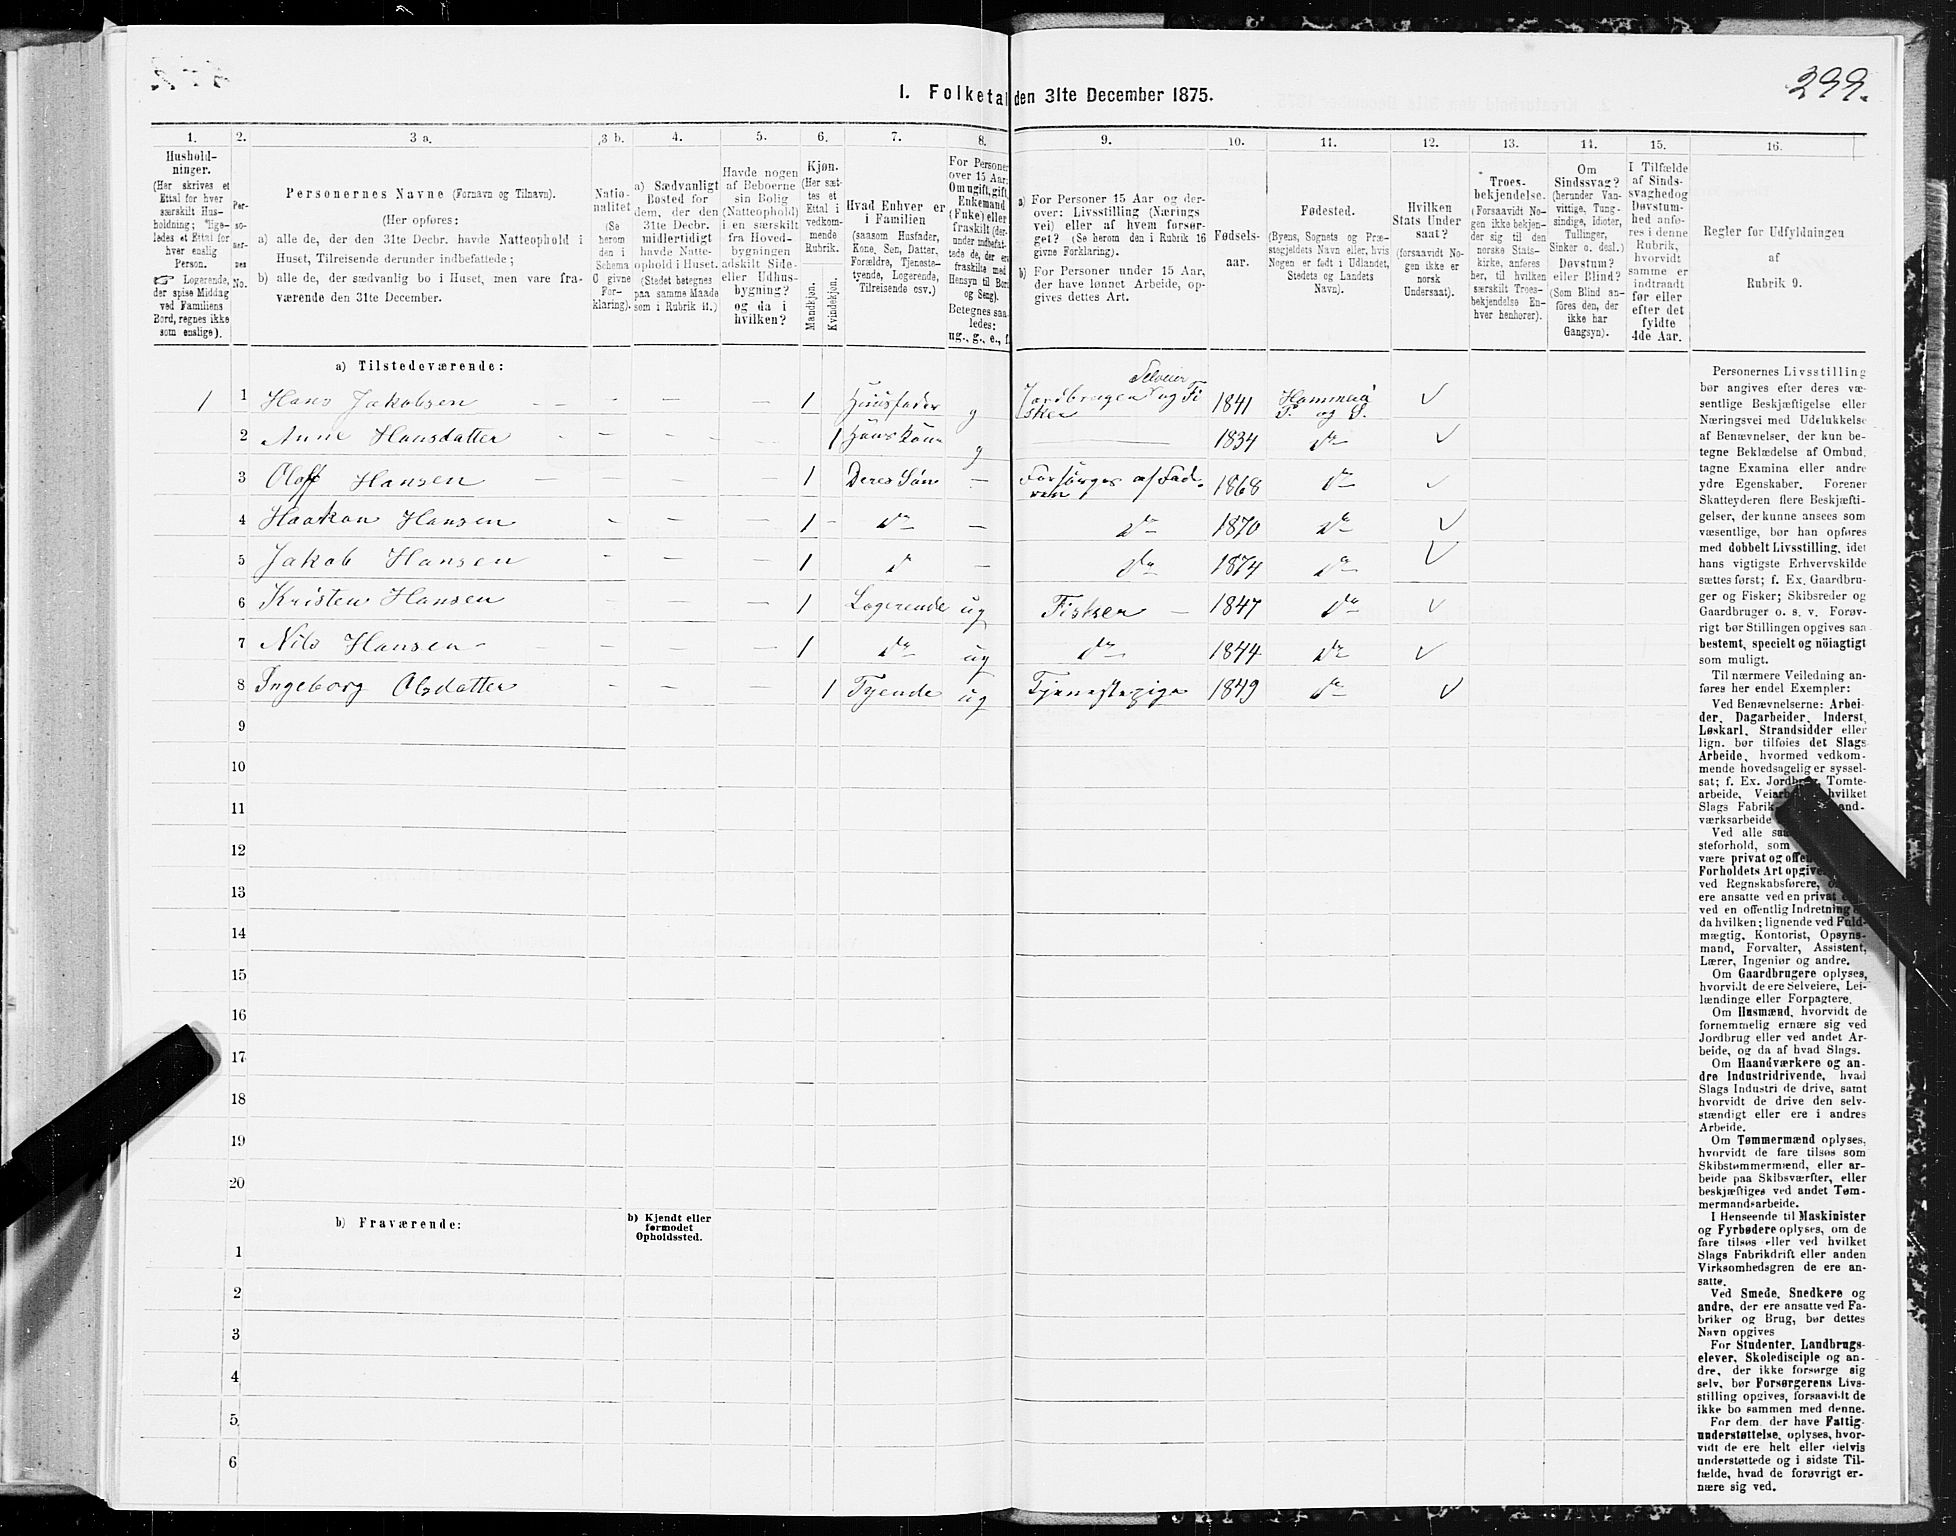 299.
I. Folketal den 31te December 1875.
1. 2. 3 a. 3 b. 4. 5. 6. 7. 8. 9. 10. 11. 12. 13. 14. 15. 16.
Hushold-
ninger.
(Her skrives et
Ettal for hver
særskilt Hus-
holdning; ligele-
ledes et Ettal for
hver enslig
Person.
Logerende,
der spise Middag
ved Familiens
Bord, regnes ikke
som enslige).
Per-
so-
ner-
nes
No.
Personernes Navne (Fornavn og Tilnavn).
(Her opføres:
a) alle de, der den 31te Decbr. havde Natteophold i
Huset, Tilreisende derunder indbefattede;
b) alle de, der sædvanlig bo i Huset, men vare fra-
værende den 31te December.
Natio-
nalitet
(Se
herom
den i
Schema
O givne
For-
klaring).
a) Sædvanligt
Bosted for
dem, der den
31te Decbr.
midlertidigt
havde Natte-
ophold i Huset.
(Stedet betegnes
paa samme Maade
som i Rubrik 11.)
Havde nogen
af Beboerne
sin Bolig
(Natteophold)
i en særskilt
fra Hoved-
bygningen
adskilt Side-
eller Udhus-
bygning?
og da i
hvilken?
Kjøn.
(Her sæt-
tes et
Ettal i
vedkom-
mende
Rubrik.
Mandkjøn.
Kvindekjøn.
Hvad Enhver er
i Familien
(saasom Husfader,
Kone, Søn, Datter,
Forældre, Tjeneste-
tyende, Logerende,
Tilreisende osv.)
For Personer
over 15 Aar:
Om ugift, gift,
Enkemand
(Enke) eller
fraskilt (der-
under indbefat-
tede de, der ere
fraskilte med
Hensyn til Bord
og Seng).
Betegnes saa-
ledes:
ug., g., e., f.
a) For Personer 15 Aar og der-
over: Livsstilling (Nærings
vei) eller af hvem forsør-
get? (Se herom den i Rubrik 16
givne Forklaring).
b) For Personer under 15 Aar,
der have lønnet Arbeide, op-
gives dettes Art.
Fødsels-
aar.
Fødested.
(Byens, Sognets og Præ-
stegjeldets Navn eller, hvis
Nogen er født i Udlandet,
Stedets og Landets
Navn).
Hvilken
Stats Under
saat?
(forsaavidt No-
gen ikke er
norsk
Undersaat).
Troes-
bekjendelse.
(Forsaavidt No-
gen ikke bekjen-
der sig til den
norske Stats-
kirke, anføres
her, til hvilken
særskilt Troes-
bekjendelse En-
hver henhører).
Om
Sindssvag?
(herunder Van-
vittige, Tung-
sindige, Idioter,
Tullinger,
Sinker o. desl.)
Døvstum?
eller Blind?
(Som Blind an-
føres den, der
ikke har
Gangsyn).
I Tilfælde
af Sinds-
svaghedog
Døvstum-
hed anfø-
res i denne
Rubrik,
hvorvidt
samme er
indtraadt
før eller
efter det
fyldte
4de Aar.
Regler for Udfyldningen
af
Rubrik 9.
a) Tilstedeværende:
1 1 Hans Jakobsen — — — 1 Huusfader g Jordbruger Selveier og Fi
sker 1841 Hammerø
P. og S. ✓
2 Anne Hansdatter — — — 1 Huuskone g — 1834 do ✓
3 Oloff Hansen — — — 1 Deres Søn — Forsørges af Fad-
ren 1868 do ✓
4 Haakon Hansen — — — 1 do — do 1870 do ✓
5 Jakob Hansen — — — 1 d — do 1874 do ✓
6 Kristen Hansen — — — 1 Logerende ug Fisker — 1847 do ✓
7 Nils Hansen — — — 1 do ug do 1844 do ✓
8 Ingeborg Olsdatter — — — 1 Tyende ug Tjenestepige 1849 do ✓
9
10
11
12
13
14
15
16
17
18
19
20
b) Fraværende:
b) Kjendt eller
formodet
Opholdssted.
1
2
3
4
5
6
Personernes Livsstilling
bør angives efter deres væ-
sentlige Beskjæftigelse eller
Næringsvei med Udelukkelse
af Benævnelser, der kun be-
tegne Beklædelse af Ombud,
tagne Examina eller andre
ydre Egenskaber. Forener
Skatteyderen flere Beskjæfti-
gelser, der kunne ansees som
væsentlige, bør han opføres
med dobbelt Livsstilling, idet
hans vigtigste Erhvervskilde
sættes først; f. Ex. Gaardbru-
ger og Fisker; Skibsreder og
Gaardbruger o. s. v. Forøv-
rigt bør Stillingen opgives saa
bestemt, specielt og nöiagtigt
som muligt.
Til nærmere Veiledning an-
føres her endel Exempler:
Ved Benævnelserne: Arbei-
der, Dagarbeider, Inderst,
Løskarl, Strandsidder eller
lign. bør tilføies det Slags
Arbeide, hvormed vedkom-
mende hovedsagelig er syssel-
sat; f. Ex. Jordbrug, Tomte-
arbeide, Veiarb hvilket
Slags Fabrik- and-
værksarbeide
Ved alle saa
steforhold, som
være privat og offen
Forholdets Art opgives
ved Regnskabsførere, o
ere ansatte ved en privat e
ved en offentlig Indretning
da hvilken; lignende ved Fuld-
mægtig, Kontorist, Opsyns-
mand, Forvalter, Assistent,
Lærer, Ingeniør og andre.
Om Gaardbrugere oplyses,
hvorvidt de ere Selveiere, Lei-
lændinge eller Forpagtere.
Om Husmænd, hvorvidt de
fornemmelig ernære sig ved
Jordbrug eller ved andet Ar-
beide, og da af hvad Slags.
Om Haandværkere og an-
dre Industridrivende, hvad
Slags Industri de drive, samt
hvorvidt de drive den selv-
stændigt eller ere i andres
Arbeide.
Om Tømmermænd oplyses,
hvorvidt de fare tilsøs som
Skibstømmermænd, eller ar-
beide paa Skibsværfter, eller
beskjæftiges ved andet Tøm-
mermandsarbeide.
I Henseende til Maskinister
og Fyrbødere oplyses, om de
fare tilsøs eller ved hvilket
Slags Fabrikdrift eller anden
Virksomhedsgren de ere an-
satte.
Ved Smede, Snedkere og
andre, der ere ansatte ved Fa-
briker og Brug, bør dettes
Navn opgives
For Studenter, Landbrugs-
elever, Skoledisciple og an-
dre, der ikke forsørge sig
selv, bør Forsørgerens Livs-
stilling opgives, forsaavidt de
ikke bo sammen med denne.
For dem, der have Fattig-
understøttelse, oplyses, hvor-
vidt de ere helt eller delvis
understøttede og i sidste Til-
fælde, hvad de forøvrigt er-
nære sig ved.